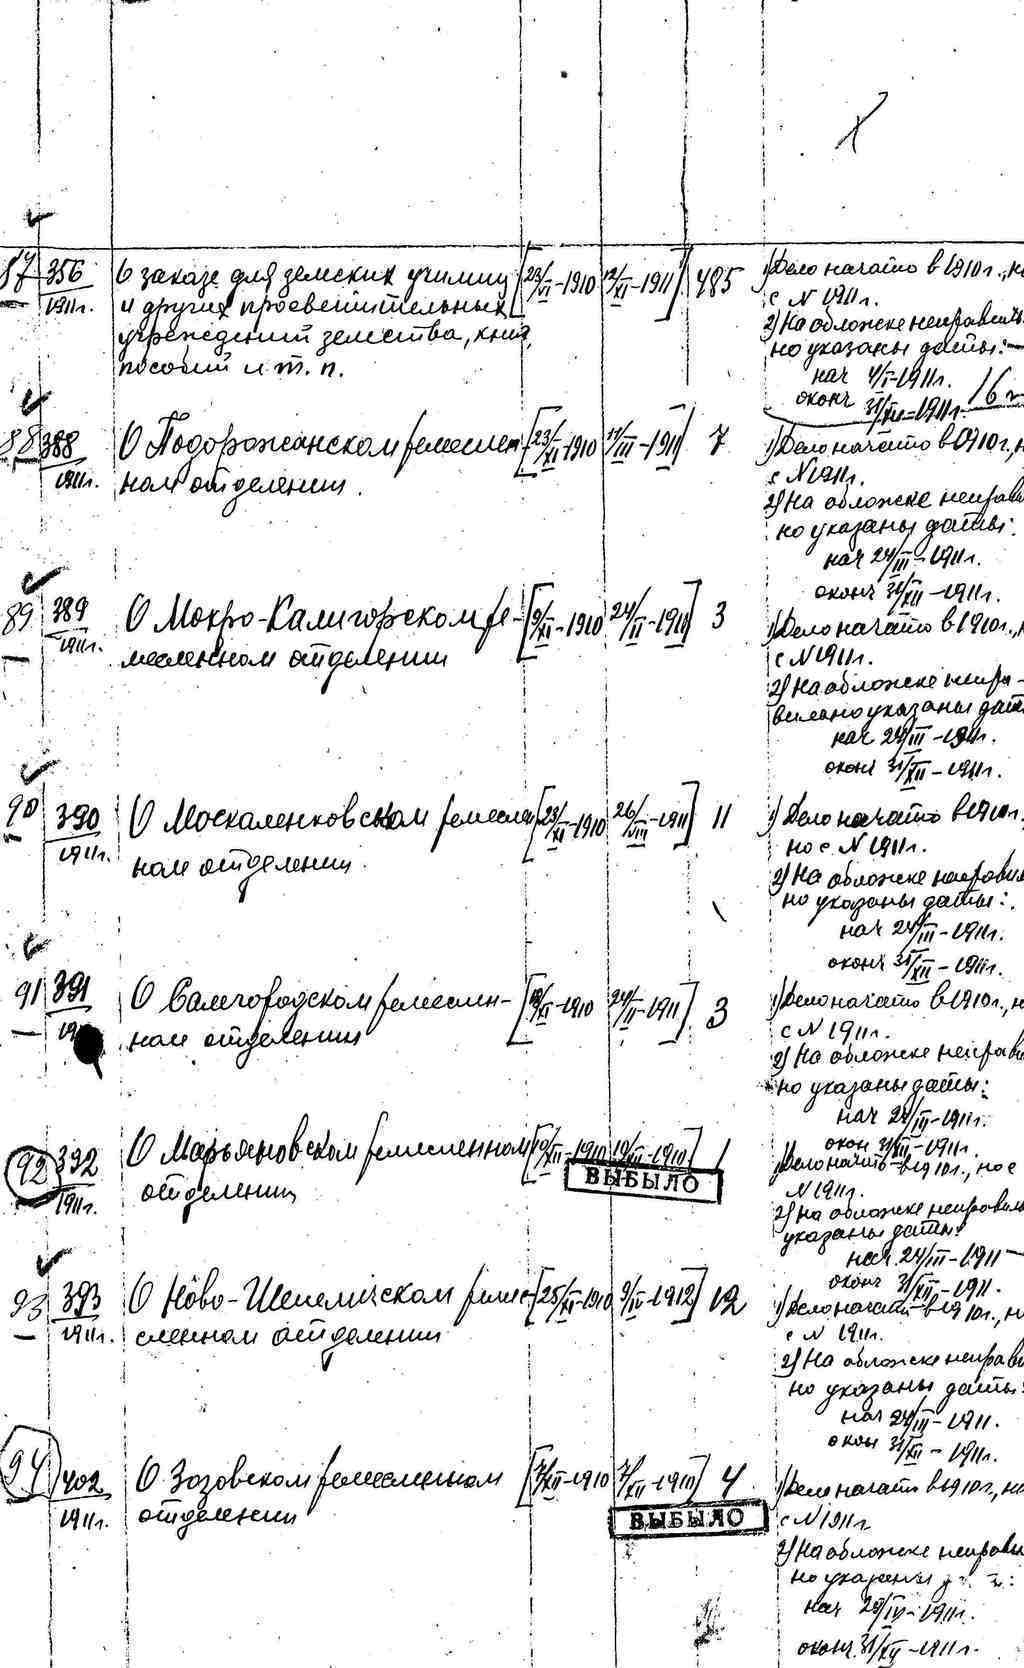 87 356 О заказе для земских училищ [23/VI-1910 12/XI-1911] 485 1) Дело начато в 1910 г., но
1911г. и других просветительных с N 1911г.
учреждений земства, книг, 2) На обложке неправиль-
пособий и т. п. но указаны даты:
нач 4/I-1911г.
оконч 31/XII-1911г.
88 388 О Подорожанском ремеслен- [23/XI-1910 17/III-1911] 7 1) Дело начато в 1910г.,
1911г. ном отделении. с N 1911г.
2) На обложке неправиль
но указаны даты:
нач 24/III-1911г.
оконч 31/XII-1911г.
89 389 О Мокро-Калигорском ре- [9/XI-1910 24/II-1911] 3 1) Дело начато в 1910г.,
1911г. месленном отделении с N 1911г.
2) На обложке непра-
вильно указаны даты
нач 24/III-1911г.
оконч 31/XII-1911г.
90 390 О Москаленковском ремеслен [23/XI-1910 26/VIII-1911] 11 1) Дело начато в 1910г.
1911г. ном отделении. но с N 1911г.
2) На обложке неправиль
но указаны даты:
нач 24/III-1911г.
оконч 31/XII-1911г.
91 391 О Самгородском ремеслен- [ /XI-1910 24/II-1911] 3 1) Дело начато в 1910г.,
19 ном отделении с N 1911г.
2) На обложке неправиль
но указаны даты:
нач 24/III-1911г.
окон 31/XII-1911г.
92 392 О Марьяновском ремесленном [10/XII-1910 19/XII-1910] 1 1) Дело начато в 1910г., но с
1911г. отделении ВЫБЫЛО N 1911г.
2) На обложке неправиль
указаны даты:
нач 24/III-1911
оконч 31/XII-1911.
93 393 О Ново-Шепеличском реме- [25/XI-1910 9/IV-1912] 12 1) Дело начато в 1910г.,
1911г. сленном отделении с N 1911г.
2) На обложке неправиль
но указаны даты:
нач 24/III-1911.
окон 31/XII-1911г.
94 402 О Зозовском ремесленном [ /XII-1910 /XII-1910] 4 1) Дело начато в 1910г., но
1911г. отделении ВЫБЫЛО с N 1911г
2) На обложке неправиль
но указаны
нач 29/IV-1911г.
оконч. 31/XII-1911г.